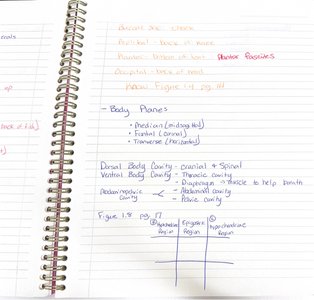 Buccal
Popliteal - back of knee
Plantar - bottom of foot Plantar Fascitis
Occipital - back of head
Know Figure 1.4 pg 14
- Body Planes
• Median (midsagittal)
• Frontal (coronal)
• Transverse (horizontal)
Dorsal Body Cavity - cranial & Spinal
Ventral Body Cavity - Thoracic cavity
- Diaphragm → muscle to help breath
Abdominopelvic Cavity < - Abdominal cavity
- Pelvic cavity
Figure 1.8 pg 17
Epigastric Region
Hypochondriac Region